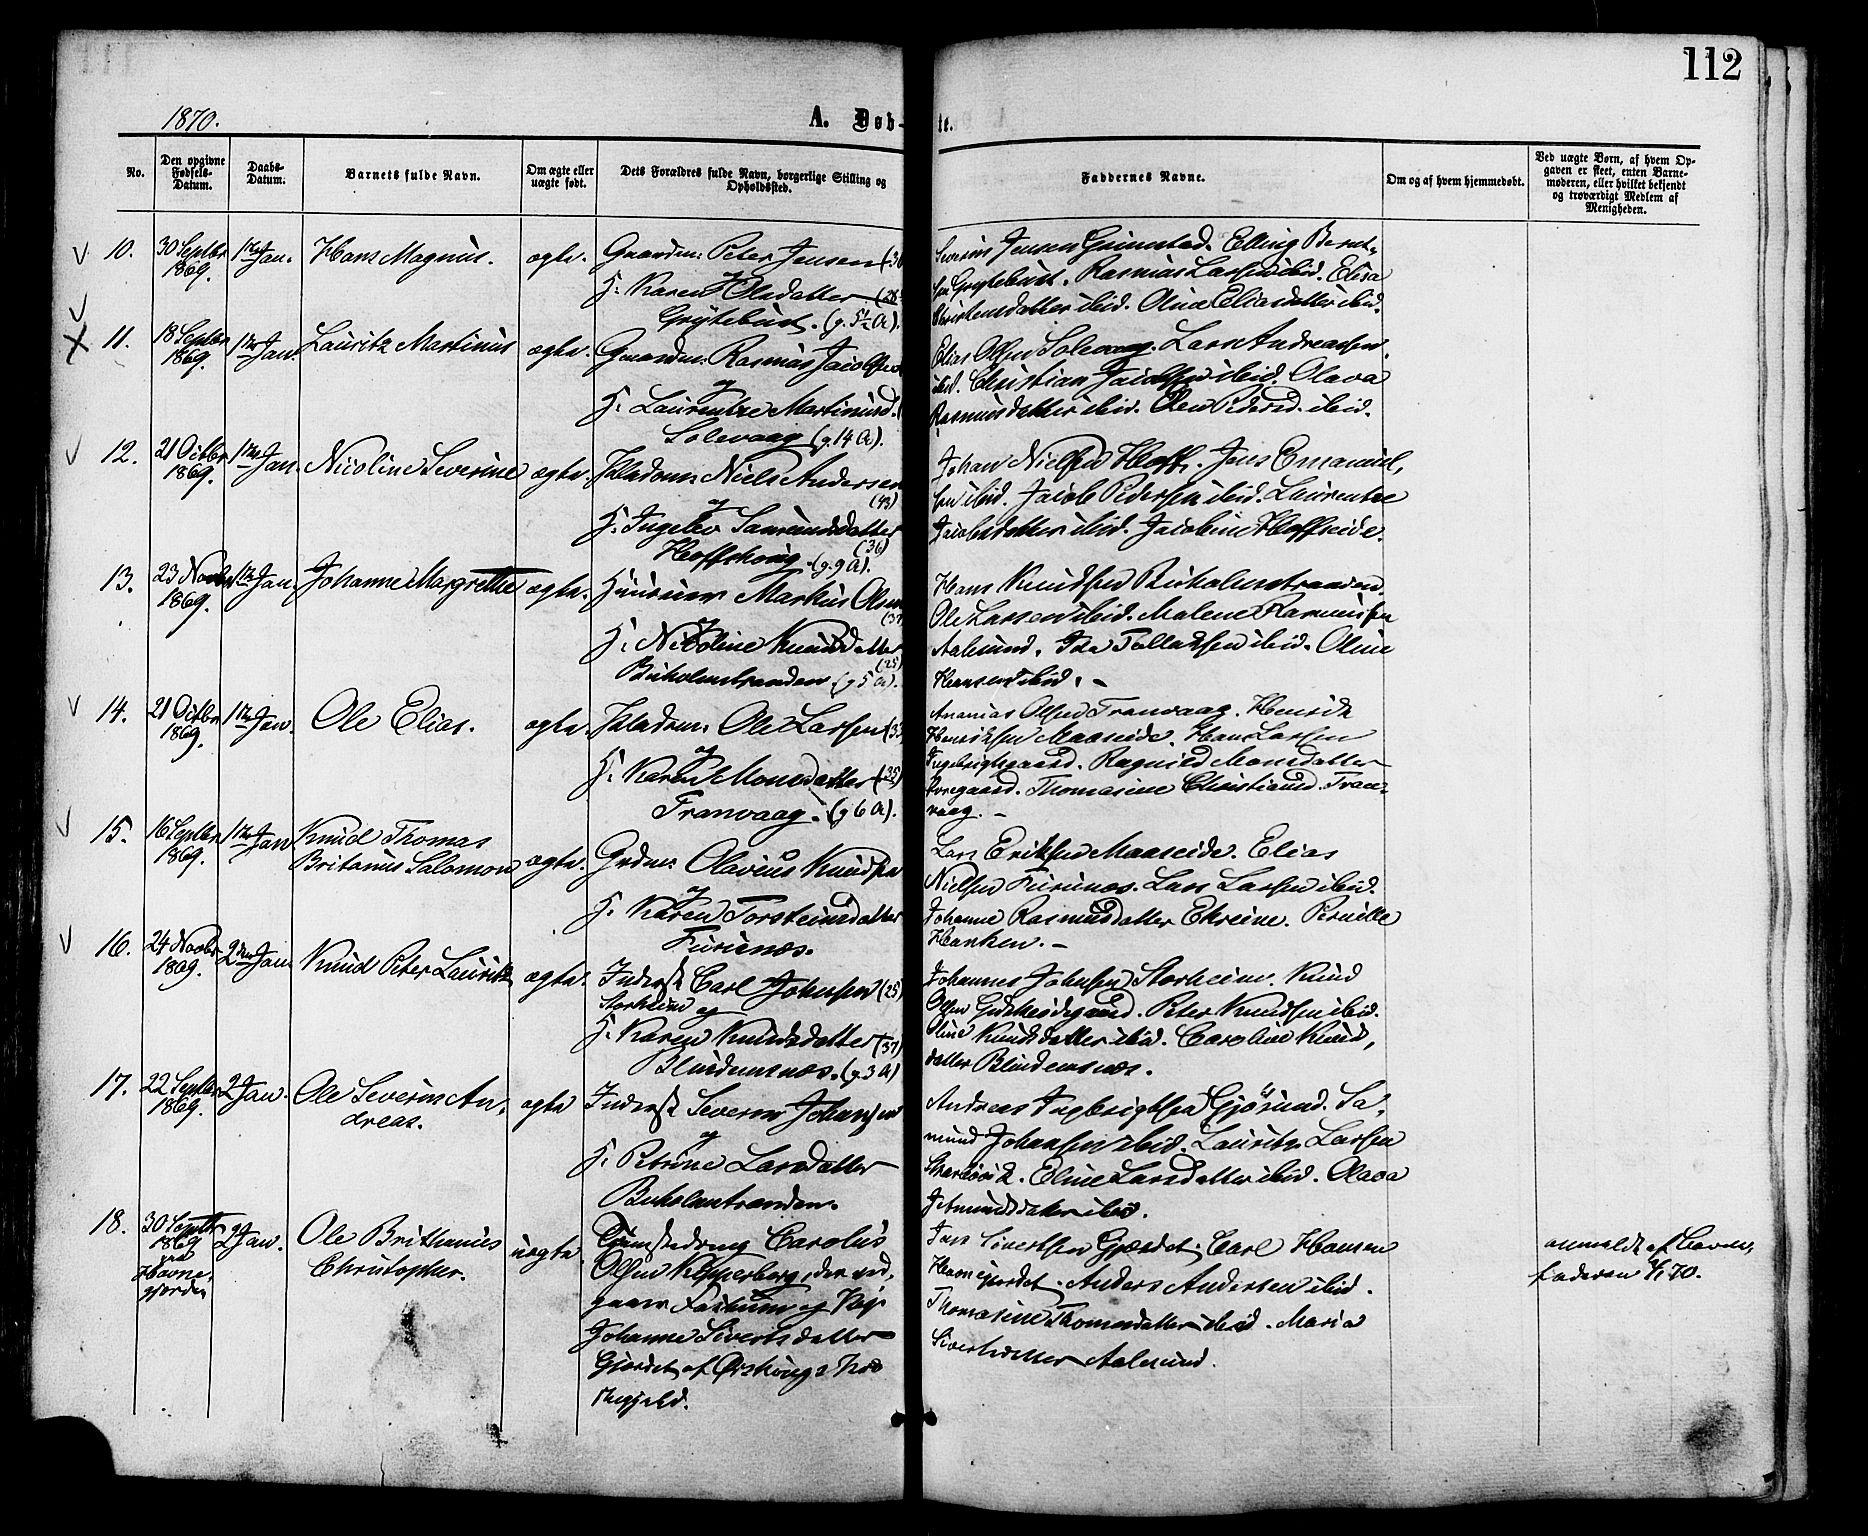 112
1870.
A. Døb-
te.
No.
Den opgivne Fødsels-Datum.
Daabs-Datum.
Barnets fulde Navn.
Om ægte eller uægte født.
Dets Forældres fulde Navn, borgerlige Stilling og Opholdssted.
Faddernes Navne.
Om og af hvem hjemmedøbt.
Ved uægte Børn, af hvem Op-
gaven er skeet, enten Barne-
moderen, eller hvilket bekjendt
og troværdigt Medlem af
Menigheden.
10. 30 Septbr 1869. 1ste Jan. Hans Magnus. ægte.
Gaardm: Peter Jensen
H: Karen Olsdatter
Grytebust. (g. 5½ A).
Severin Jensen Grimstad. Elling Bernt-
sen Grytebust. Rasmus Larsen ibid. Elisa
ibid. Oline Eliasdatter ibid.
11. 18 Septbr 1869. 1ste Jan. Lauritz Martinus ægte.
Gaardm: Rasmus Jacobsen
og
H: Laurentze Martinusd.
Solevaag (g. 14 A).
Elias Olsen Solevaag. Lars Andreassen
ibid. Christian Jacobsen ibid. Olava
Rasmusdatter ibid. Olen Pedersd. ibid.
12. 21 Octbr 1869. 1ste Jan. Nicoline Severine ægte.
Niels Andersen
(43)
og
H: Ingebor Samundsdatter
(36)
Hoffskoug. (g. 9 A).
Johan Nielsen Hoff. Jens Emanuel-
sen ibid. Jacob Pedersen ibid. Laurentze
Jacobsdatter ibid. Jacobine Hoffseide.
13. 23 Novbr 1869. 1ste Jan. Johanne Margrethe ægte.
Huusmm Markus Olsen
H: Nicoline Knudsdatter
(25)
Buholmstranden. (g 5 A).
Hans Knudsen Buholmstranden.
Ole Larsen ibid. Malene Rasmussen
Aalesund. Ida Tollaksen ibid. Oline
Hansen ibid. -
14. 21 Octbr 1869. 1ste Jan. Ole Elias. ægte.
Ole Larsen
og
H: Karen Monsdatter (35)
Tranvaag. (g 6 A).
Ananias Olsen Tranvaag. Henrik
Henriksen Maaseide. Hans Larsen
Ingebrigtgaard. Ragnild Monsdatter
Thomasine Christiansd. Tran-
vaag. -
15. 16 Septbr 1869. 1ste Jan Knud Thomas
Britanus Salomon ægte.
Grdm: Olavius Knudsen
og
H: Karen Torsteinsdatter
Furunæs.
Lars Eriksen Maaseide. Elias
Nielsen Furunæs. Lars Larsen ibid.
Johanne Rasmusdatter Ekreine. Pernille
Hanken. -
16. 24 Novbr 1869. 2den Jan. Knud Peter Lauritz ægte.
Inderst Carl Johnsen (25)
Storheim og
H: Karen Knudsdatter (37)
Blindemsnæs. (g. 3 A)
Johannes Johnsen Storheim. Knud
Olsen Gudskødegaard. Peter Knudsen ibid.
Oline Knudsdatter ibid. Caroline Knud-
datter Blindemsnæs.
17. 22 Septbr 1869. 2 Jan. Ole Severin An-
dreas. ægte
Inderst Severin Johansen
og
H: Petrine Larsdatter
Buholmstranden.
Andreas Ingebrigtsen Gjøsund. Sa-
mund Johansen ibid. Lauritz Larsen
Eline Larsdatter ibid. Olava
ibid.
18. 30 Septbr 1869 paa Havne-
gjerdet 2 Jan. Ole Brithanius
Christopher. uægte.
Carolus
Olsen Kipperberg, der ved-
gaaer Faderen og Pige
Johanne Sivertsdatter
Gjærdet af Ørskougs Præ-
stegjeld.
Sivertsen Gjærdet. Carl Hansen
Havnegjerdet. Anders Andersen ibid.
Thomasine Thomasdatter ibid. Maria
Sivertsdatter Aalesund.
anmeldt af Barne-
faderen 2/1 70.